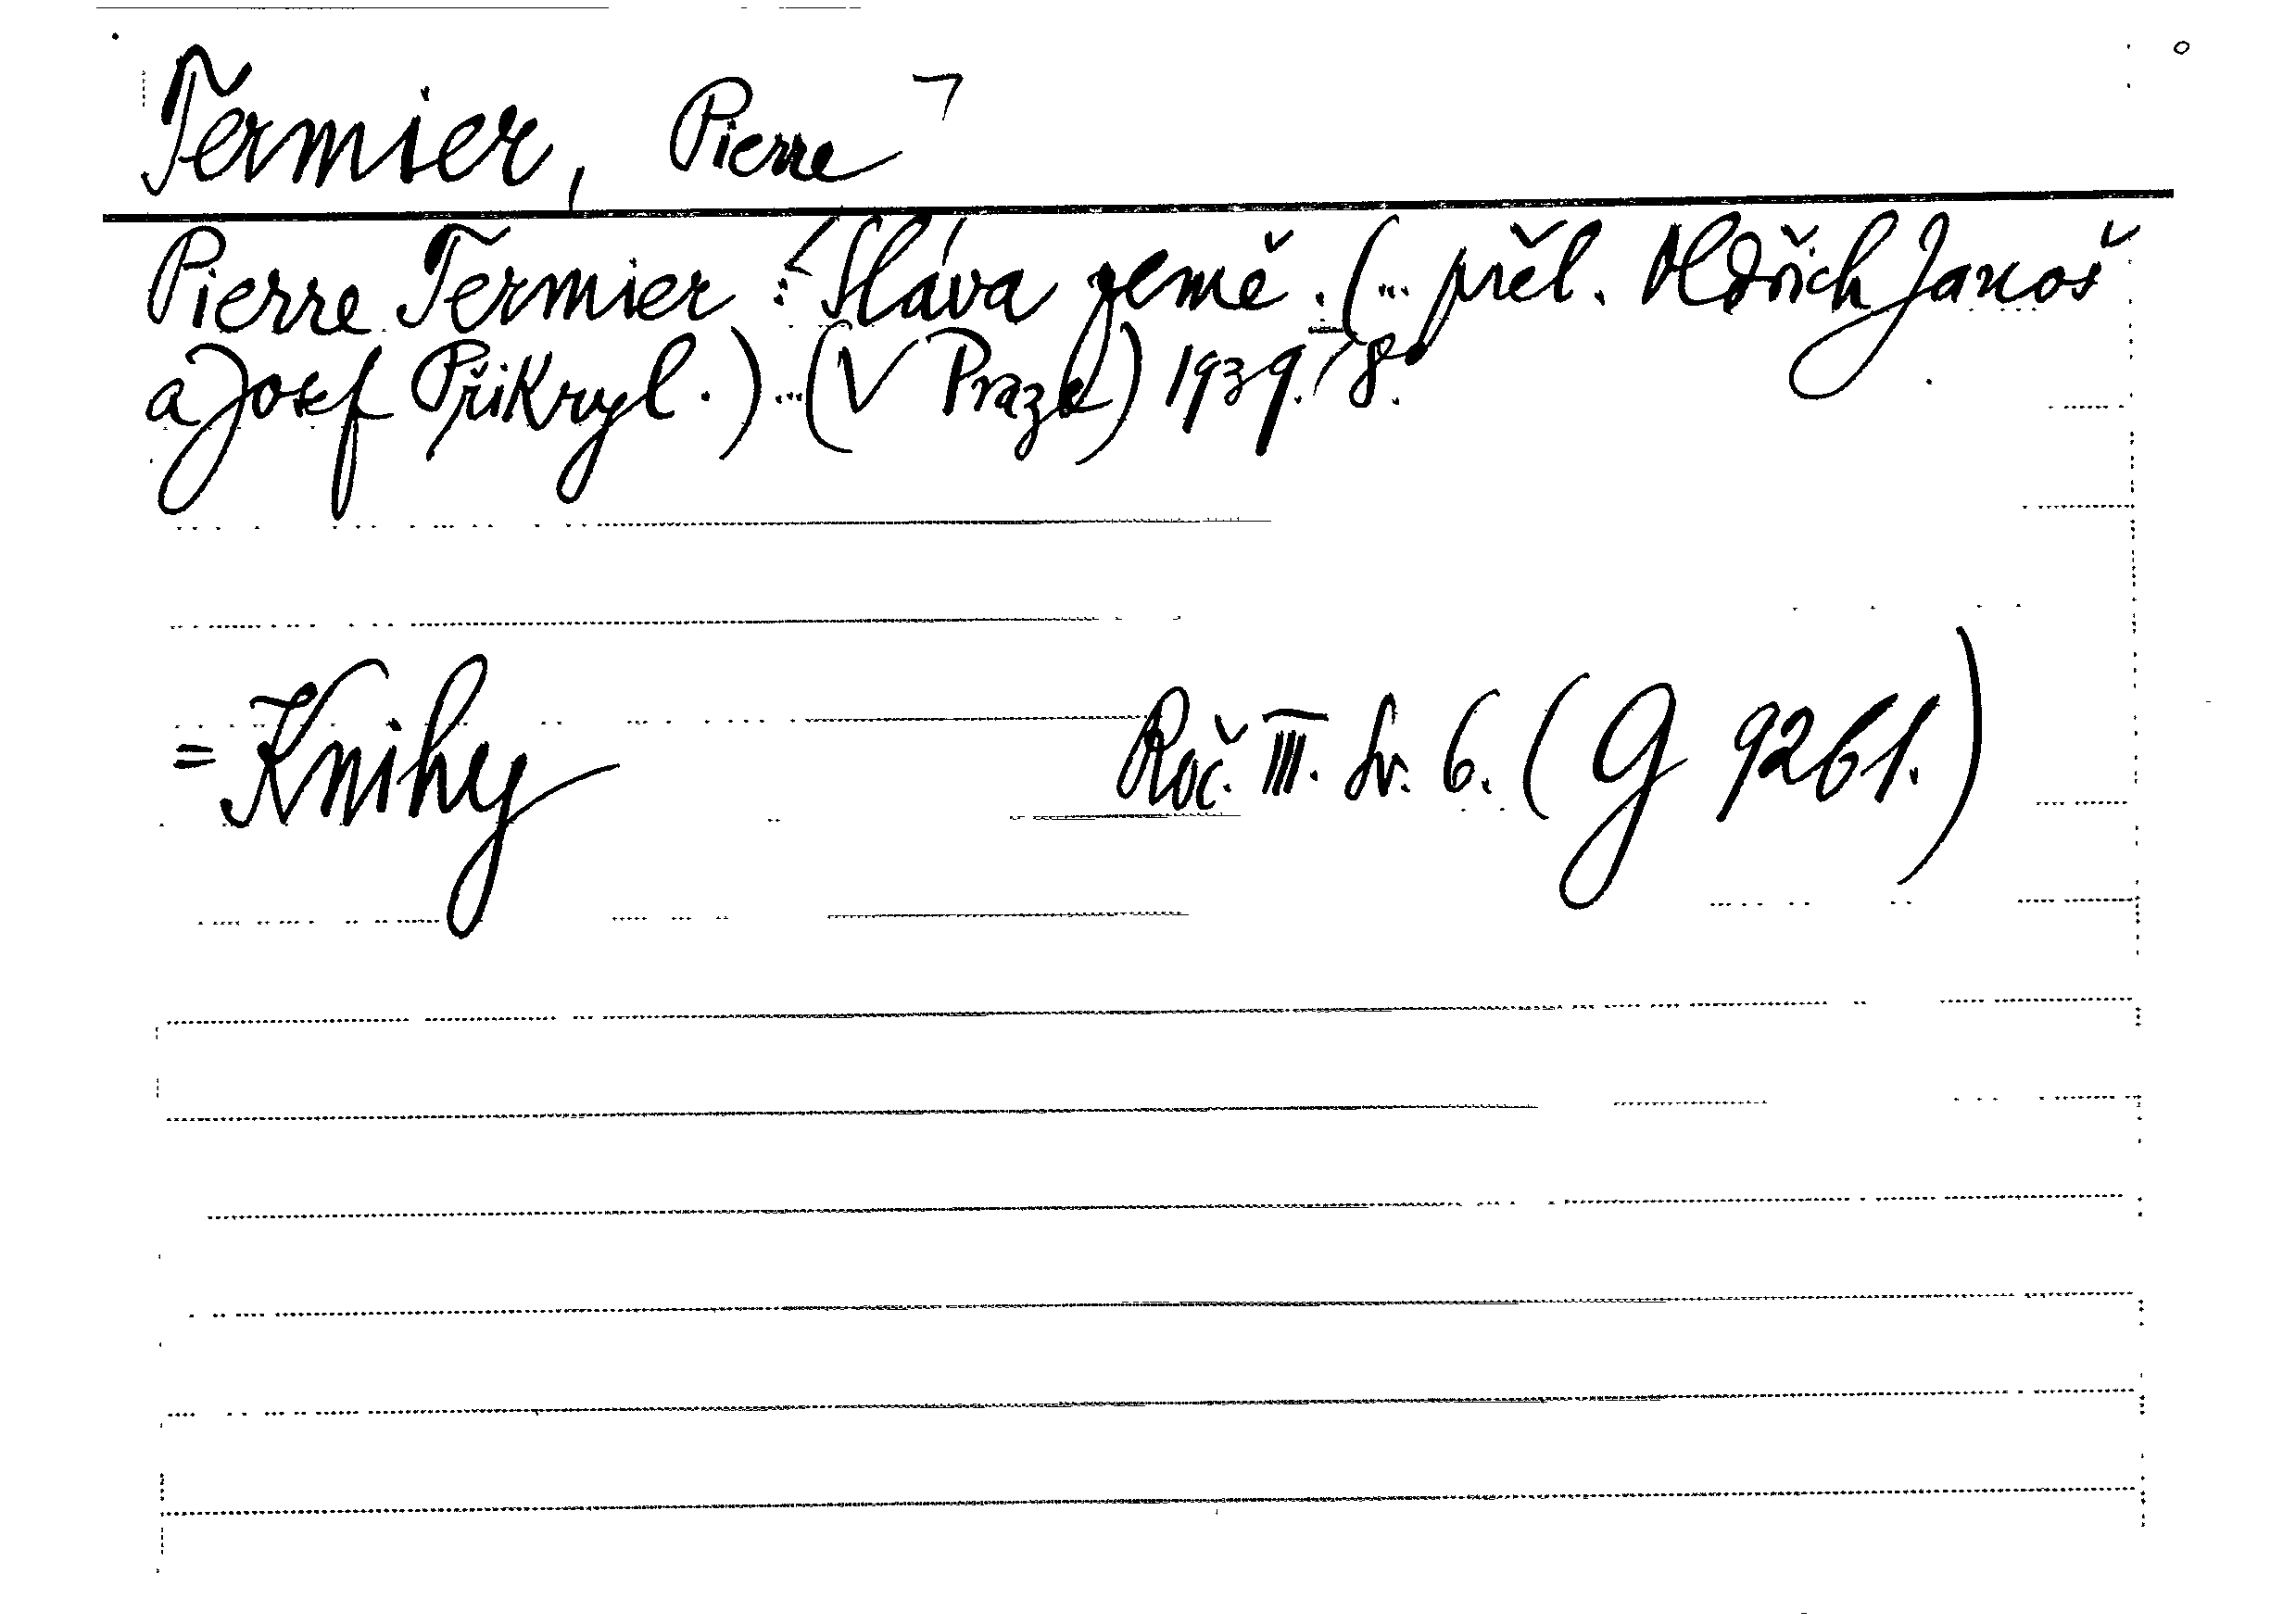 Termier, Pierre
Pierre Termier : Sláva země. (... přel. Oldřich Janoš
a Josef Přikryl.) ... (V Praze) 1939. 8°.
= Knihy Roč. III. Sv. 6. (G 9261.)